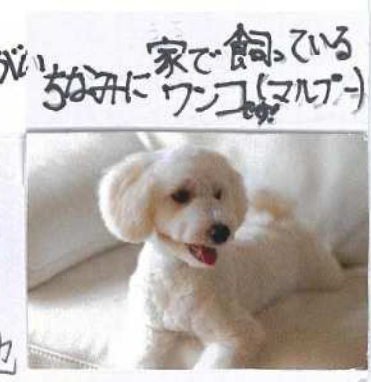 がい
ちなみに 家で飼っている
ワンコ(マルプー)
です!
也